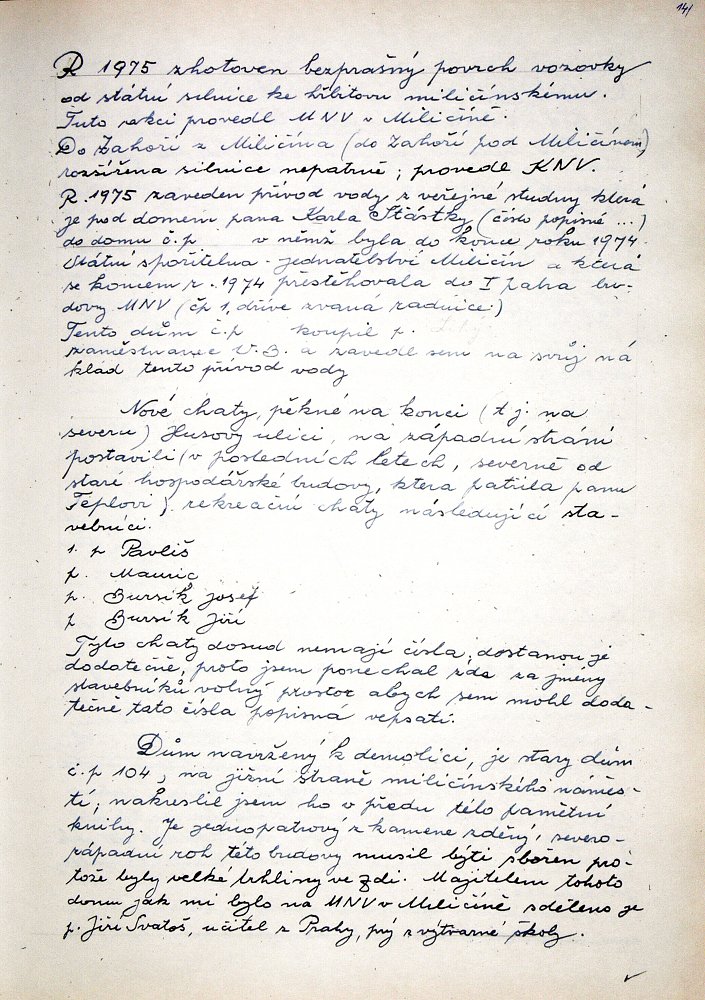 141
R 1975 zhotoven bezprašný povrch vozovky
od státní silnice ke hřbitovu miličínskému.
Tuto akci provedl MNV v Miličíně.
Do Zahoří z Miličína (do Zahoří pod Miličínem)
rozšířena silnice nepatrně; provedl KNV.
R. 1975 zaveden přívod vody z veřejné studny která
je pod domem pana Karla Šťástky (číslo popisné ...)
do domu č.p v němž byla do konce roku 1974.
Státní spořitelna - jednatelství Miličín a která
se koncem r. 1974 přestěhovala do I patra bu-
dovy MNV (čp 1, dříve zvaná radnice.)
Tento dům č.p koupil p.
zaměstnanec V.B. a zavedl sem na svůj ná
klad tento přívod vody
Nové chaty, pěkné na konci (t j. na
severu) Husovy ulici, na západní stráni
postavili (v posledních letech, severně od
staré hospodářské budovy, ktera patřila panu
Teplovi). rekreační chaty následující sta-
vebníci.
1. p Pavliš
p. Mauric
p. Bursík Josef
p Bursík Jiří
Tyto chaty dosud nemají čísla, dostanou je
dodatečně, proto jsem ponechal zde za jmény
stavebníků volný prostor abych sem mohl doda-
tečně tato čísla popisná vepsati.
Dům navržený k demolici, je starý dům
č.p 104, na jižní straně miličínského náměs-
tí; nakreslil jsem ho v předu této pamětní
knihy. Je jednopatrový z kamene zděný, severo-
západní roh této budovy musil býti sbořen pro-
tože byly velké trhliny ve zdi. Majitelem tohoto
domu jak mi bylo na MNV v Miličíně sděleno je
p. Jiří Svatoš, učitel z Prahy, prý z výtvarné školy.